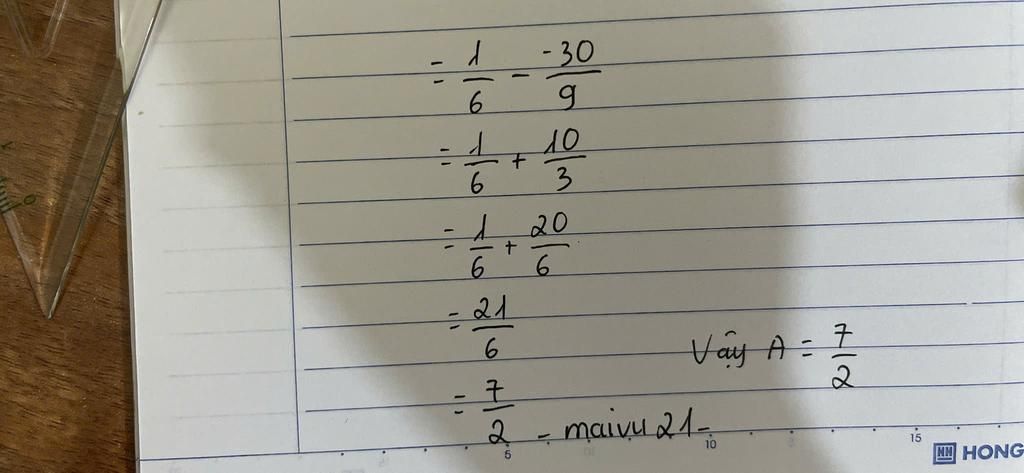 = 1/6 - -30/9
= 1/6 + 10/3
= 1/6 + 20/6
= 21/6
Vậy A = 7/2
= 7/2 - maivu21-
5 10 15
HONG